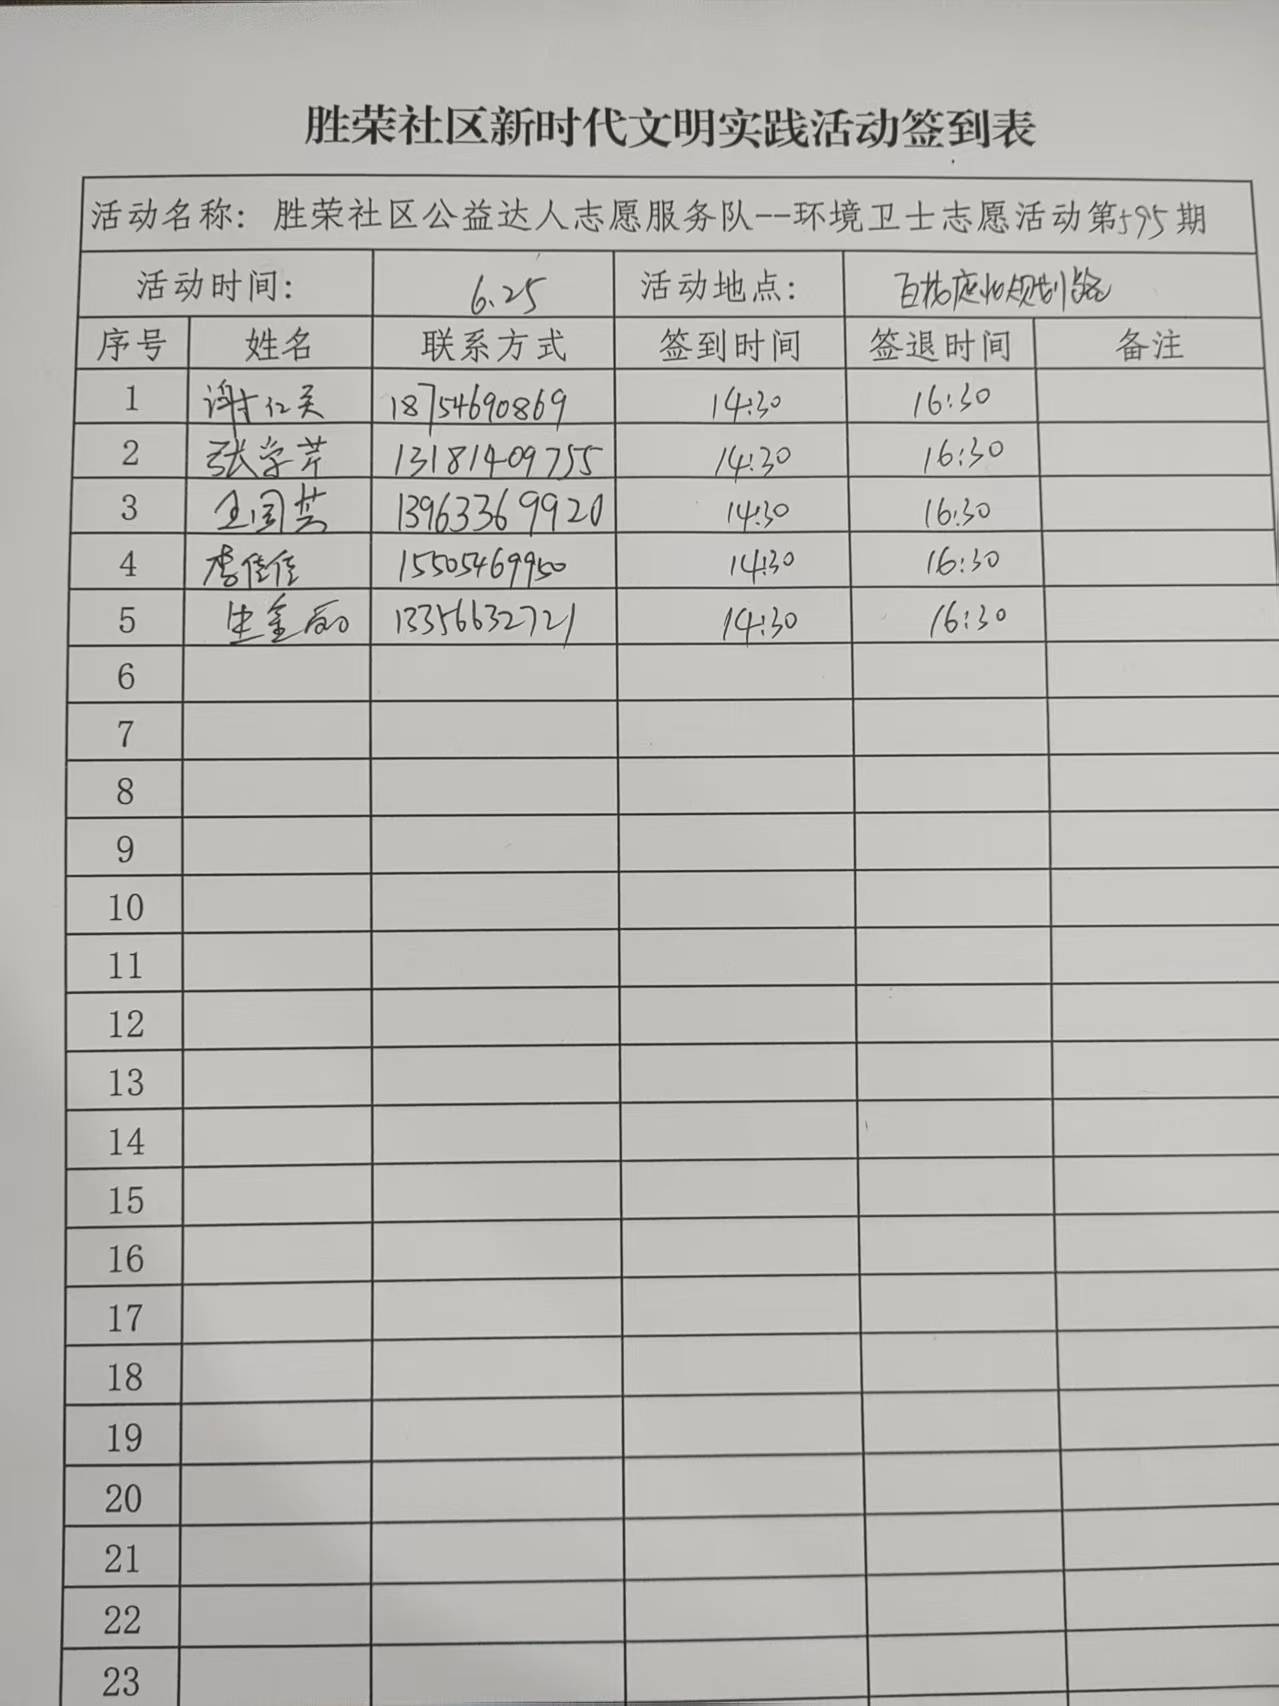 胜荣社区新时代文明实践活动签到表
活动名称: 胜荣社区公益达人志愿服务队--环境卫士志愿活动第595期
活动时间: 6.25 活动地点: 规划路
序号 姓名 联系方式 签到时间 签退时间 备注
1 谢 18754690869 14:30 16:30
2 张学芹 13181409755 14:30 16:30
3 王国英 13963369920 14:30 16:30
4 李佳佳 15505469950 14:30 16:30
5 13356632721 14:30 16:30
6
7
8
9
10
11
12
13
14
15
16
17
18
19
20
21
22
23